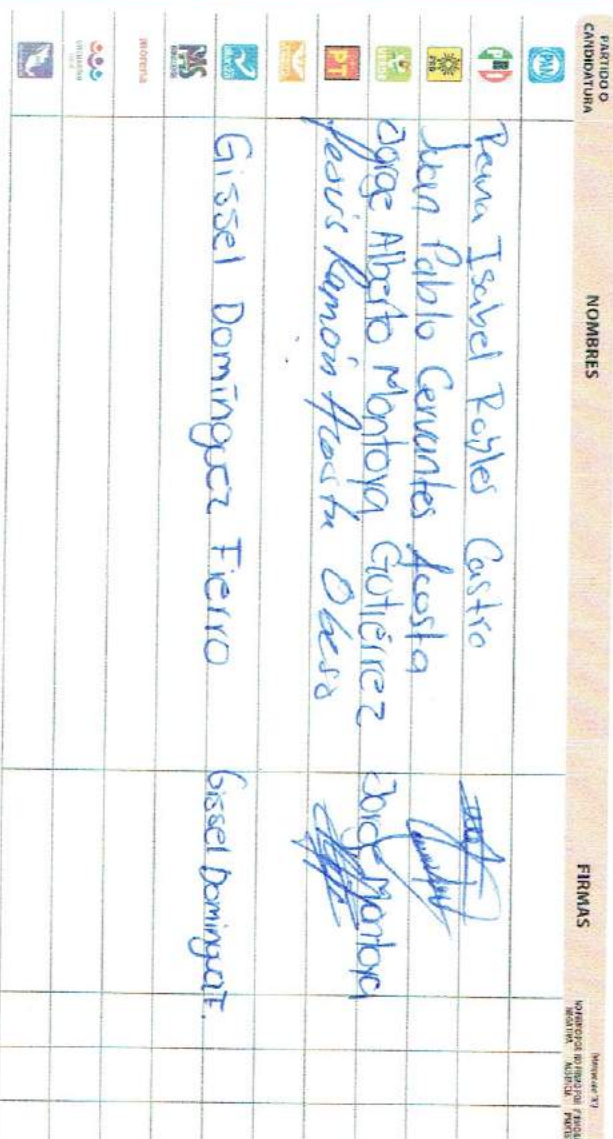 PARTIDO O CANDIDATURA NOMBRES FIRMAS
PAN
PRI Reyna Isabel Robles Castro
PRD Juan Pablo Cervantes Acosta
VERDE Jorge Alberto Montoya Gutiérrez Jorge Montoya
PT Jesús Ramón Acosta Obeso
alianza Gissel Domínguez Fierro Gissel Domínguez F.
PAS
morena